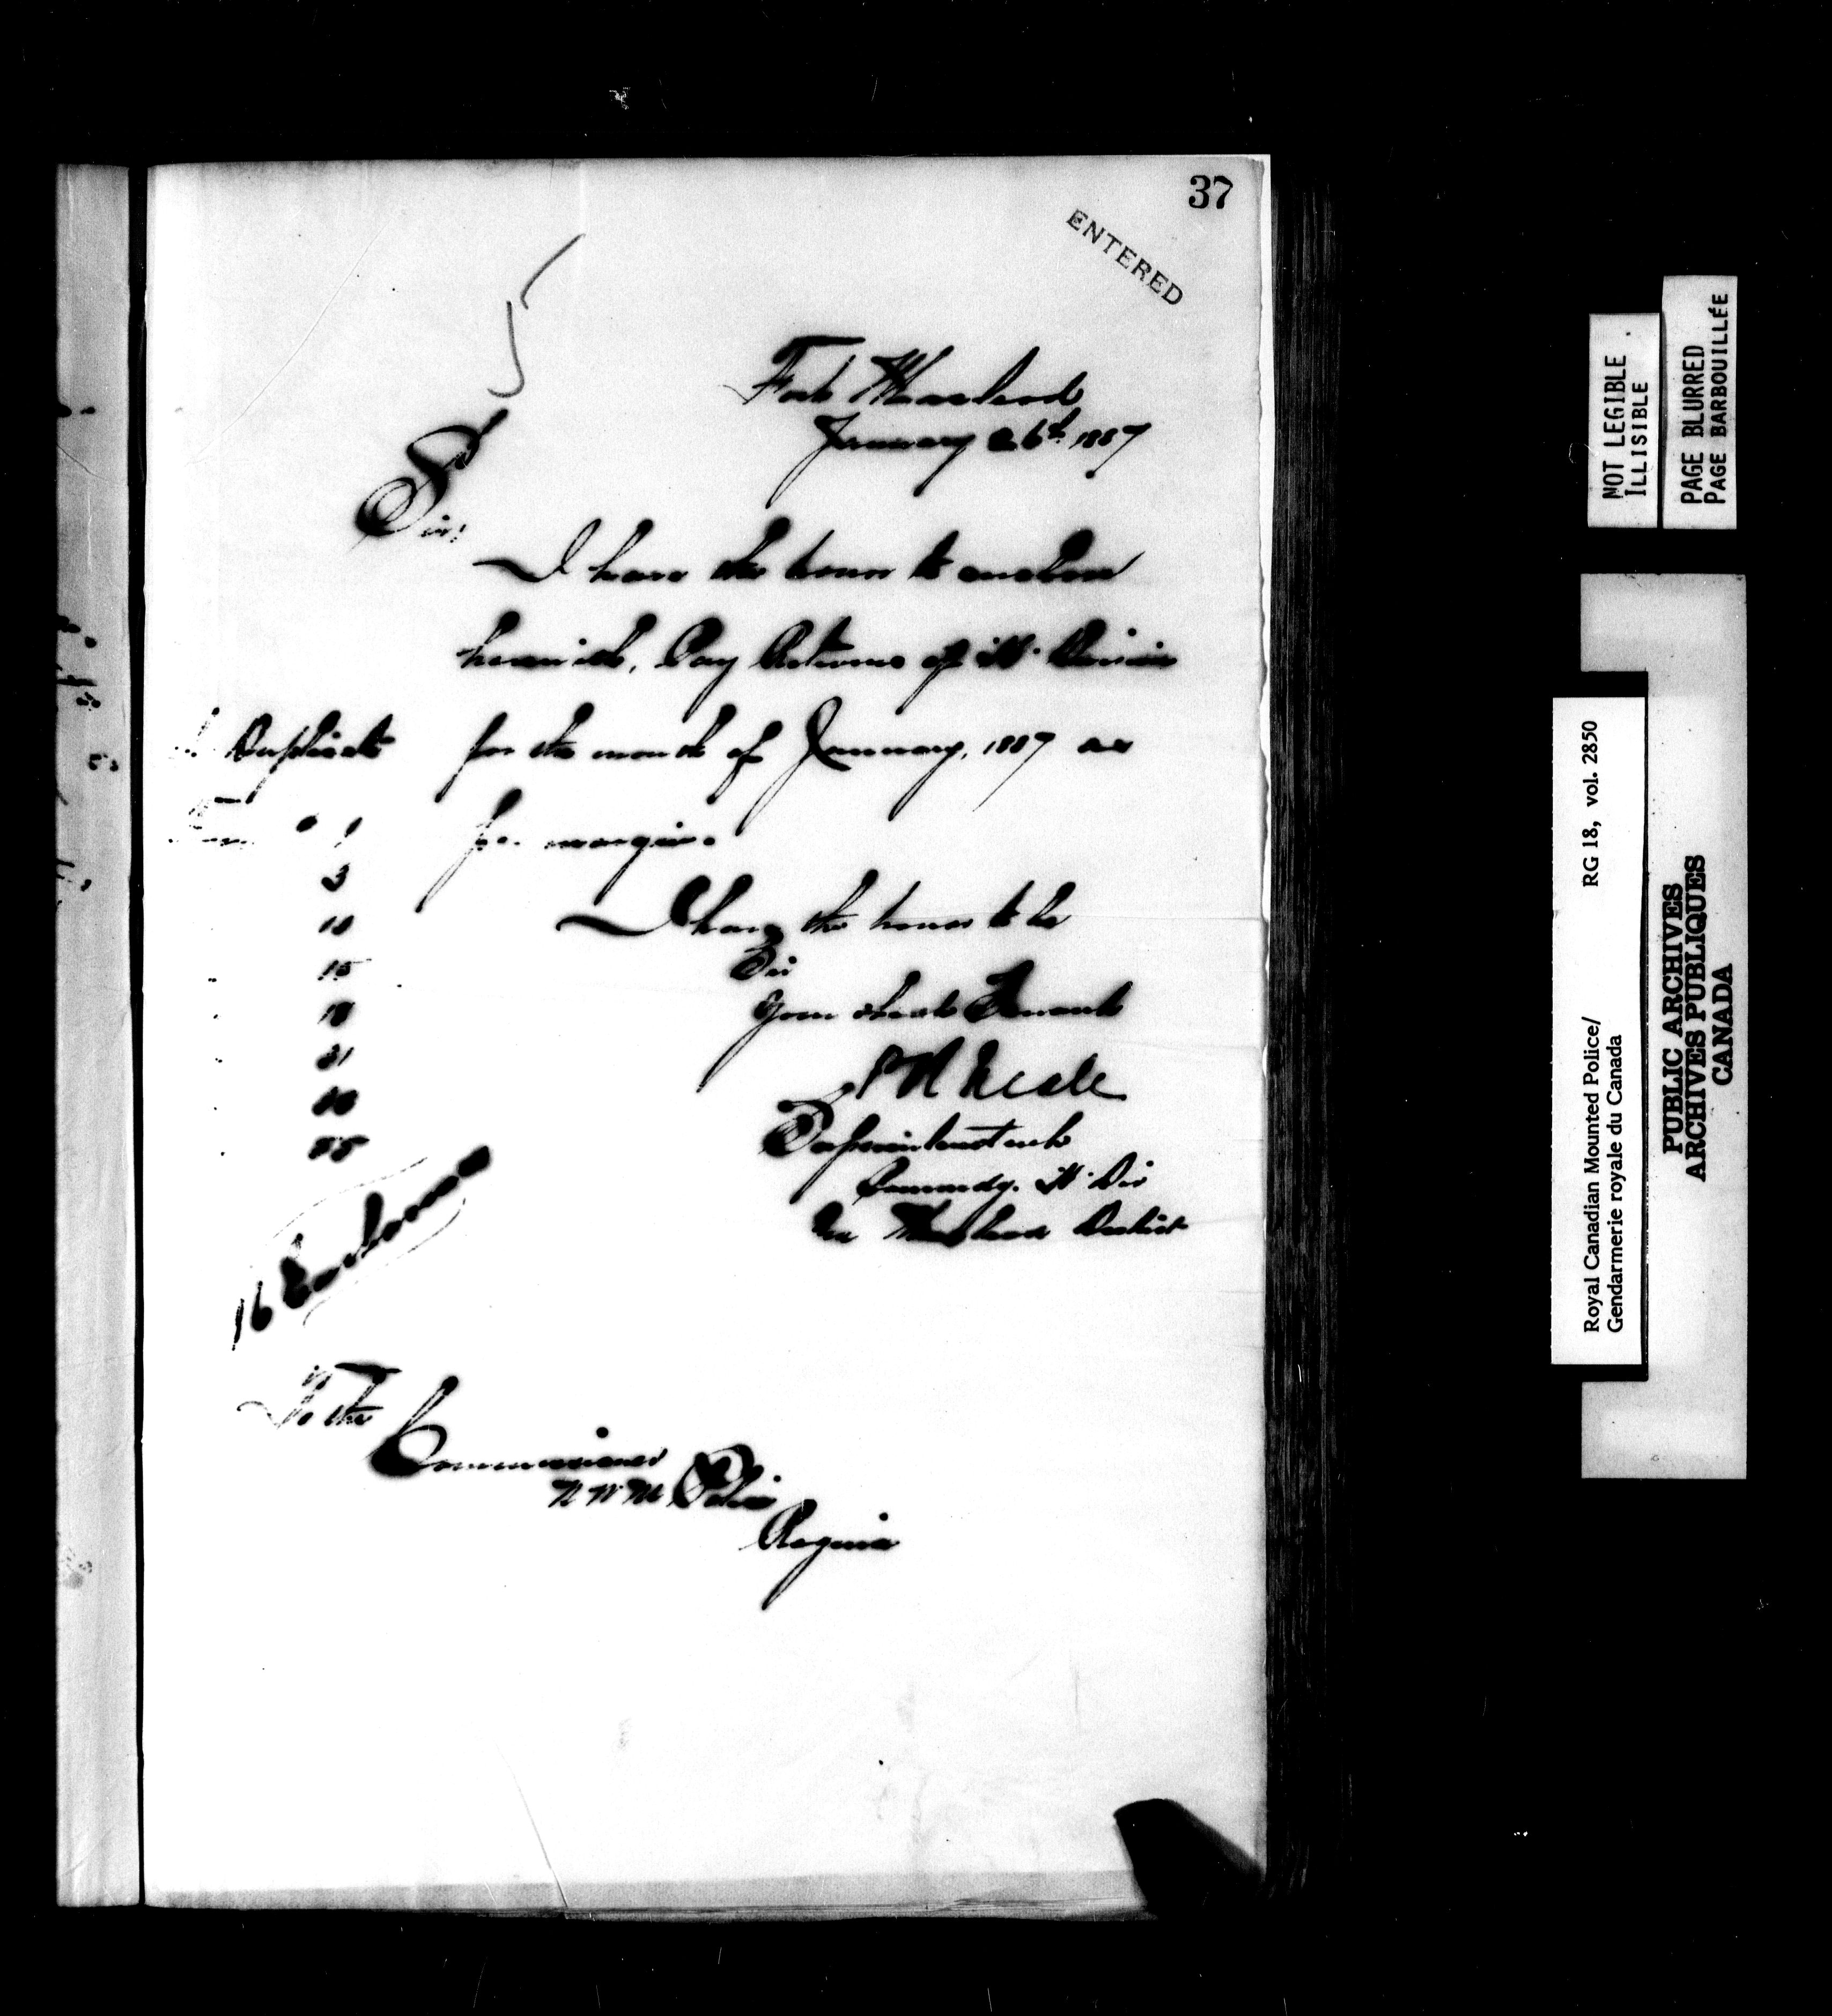 37
ENTERED
Fort Macleod
January 26th 1887
Sir,
I have the honor to enclose
herewith, Pay Returns of "H" Division
Duplicate for the month of January, 1887 as
1 per margin.
3
I have the honor to be
15
Sir
18
Your obedt Servant
31
P R Neale
Superintendent
Commdg. "H" Div
Macleod District
16 Enclosures
To the
Commissioner
N W M Police
Regina
NOT LEGIBLE
ILLISIBLE
PAGE BLURRED
PAGE BARBOUILLÉE
Royal Canadian Mounted Police/ RG 18, vol. 2850
Gendarmerie royale du Canada
PUBLIC ARCHIVES
ARCHIVES PUBLIQUES
CANADA